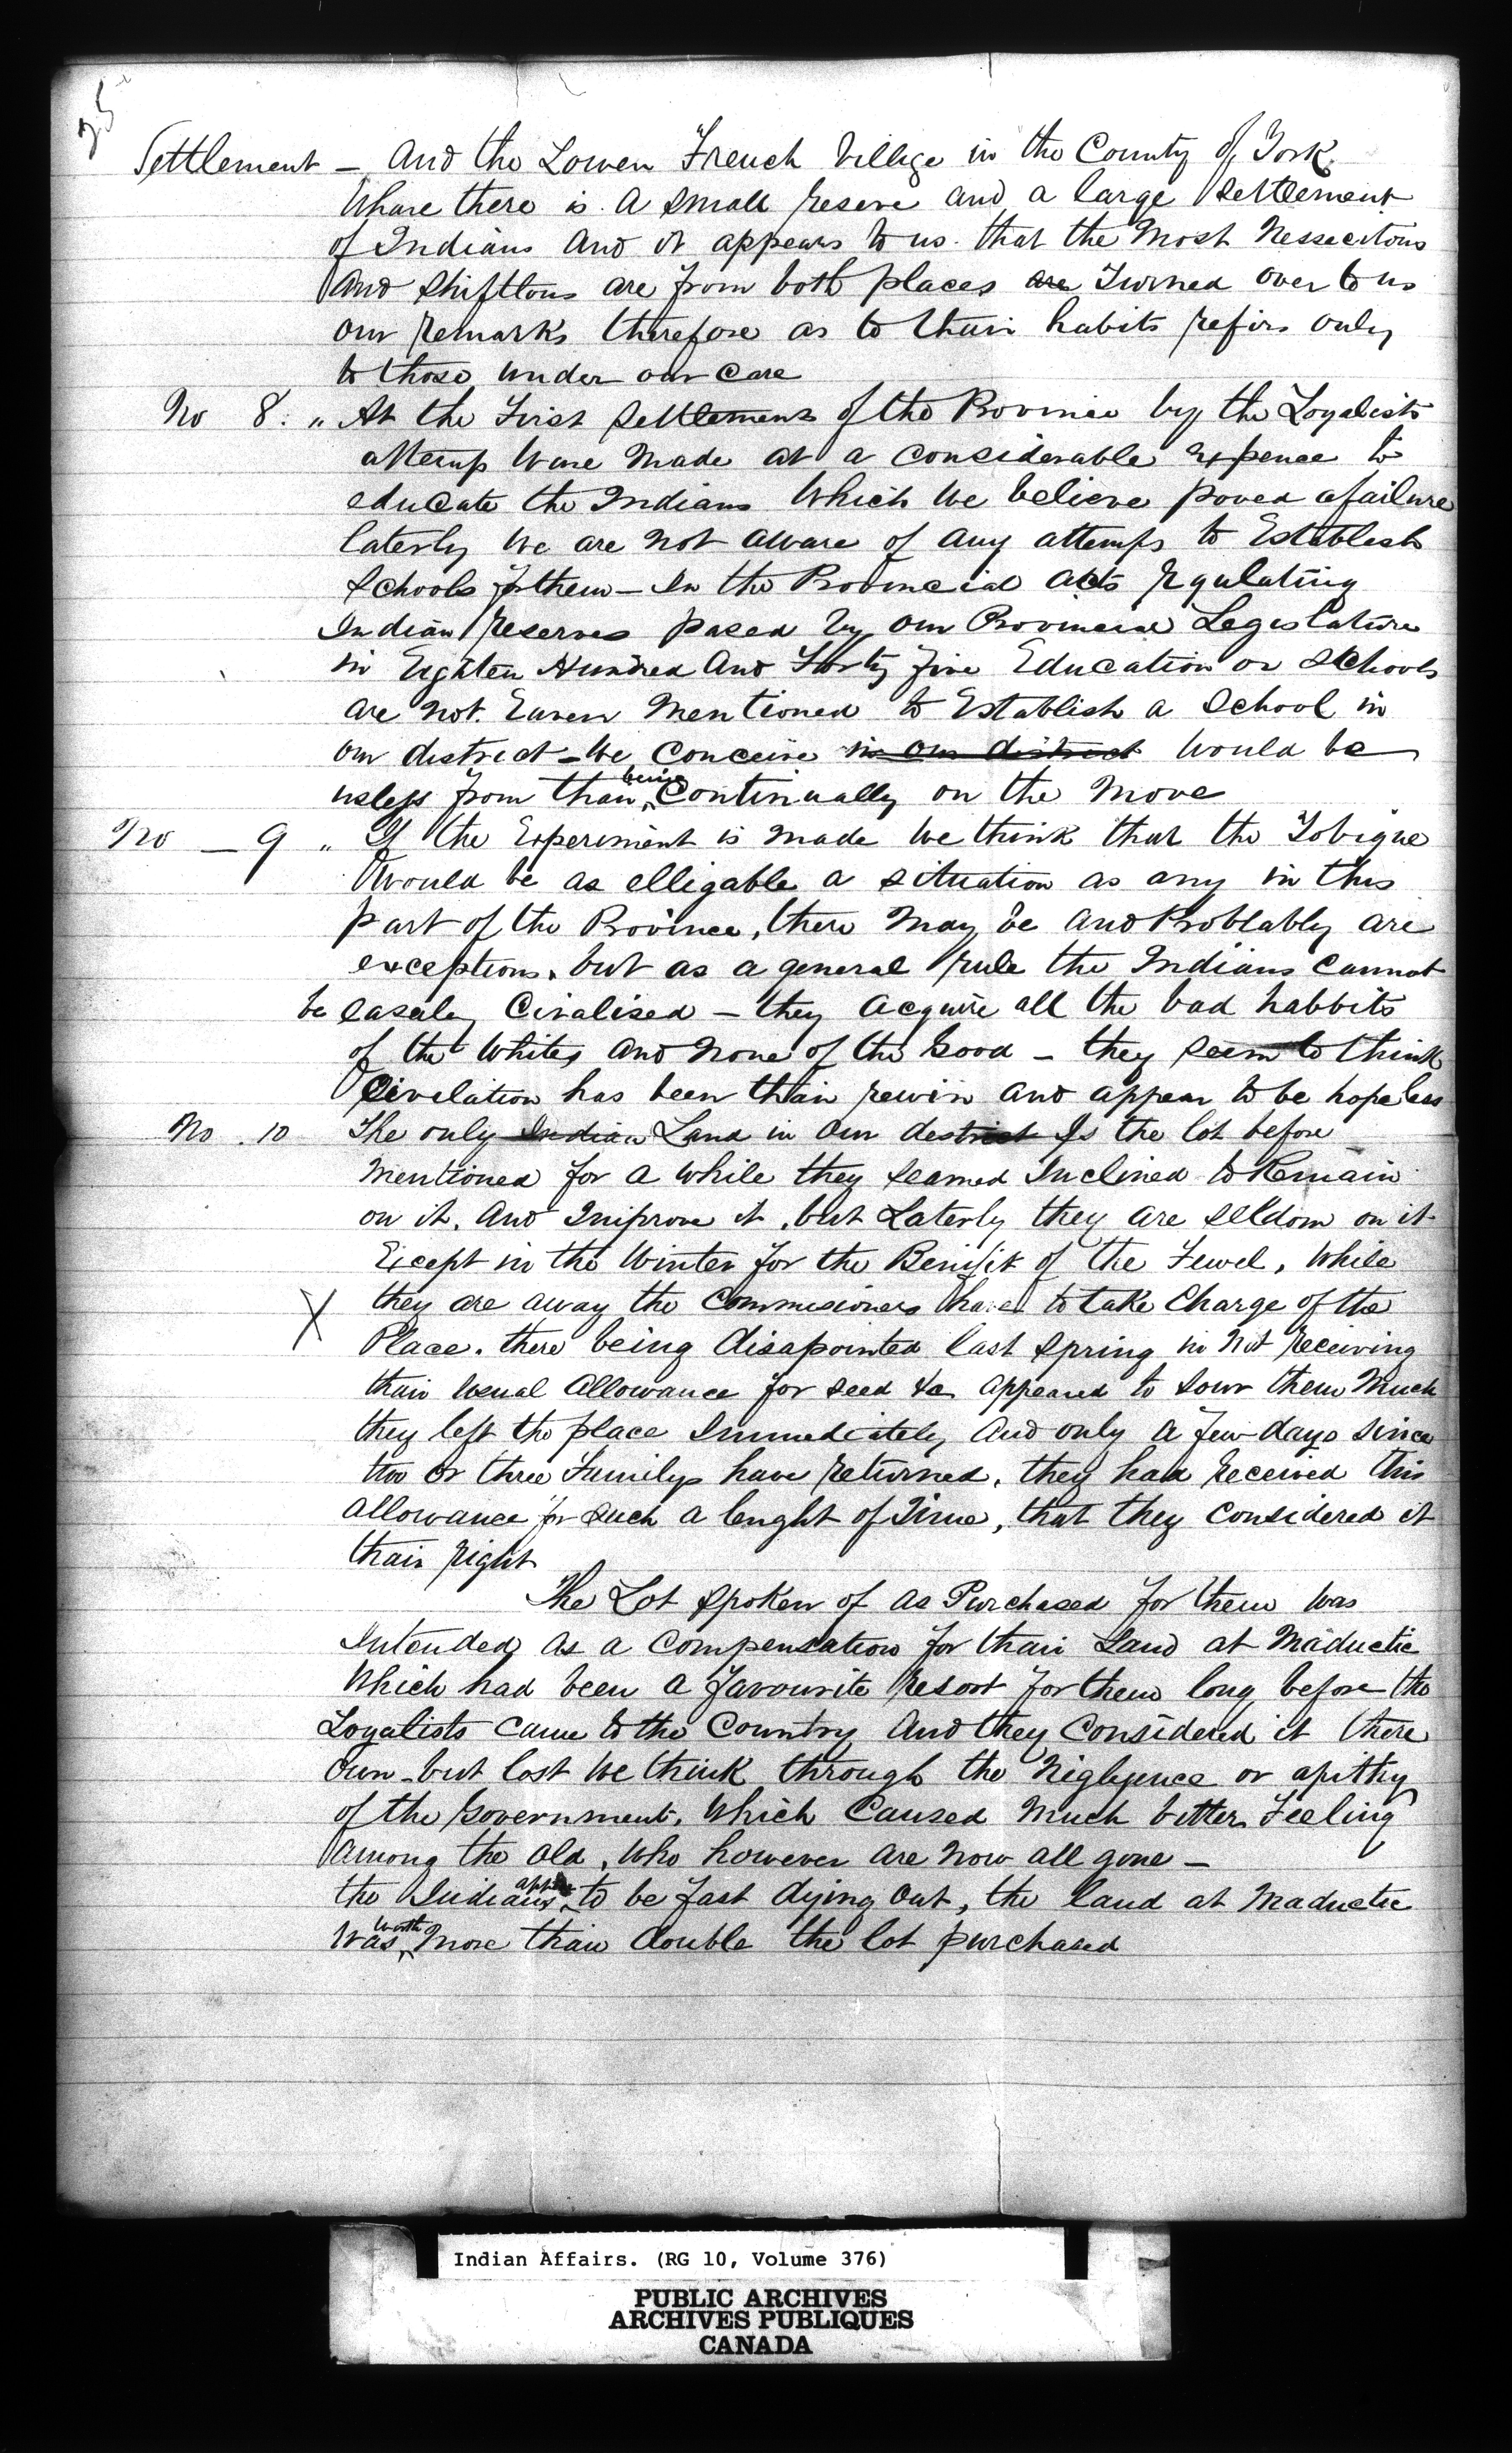 25
Settlement – And the Lower French Villige in the County of York
Whare there is A small reserve and a large settlement
of Indians And it appears to us that the Most Nessecitous
And Shiftlous are from both places are Turned over to us
our remarks therefore as to thair habits refirs only
to those under our Care
No 8. " At the First Settlement of the Province by the Loyalists
attemp ware Made at a considerable Expence to
educate the Indians Which We believe poved a failure
laterly We are not aware of any attemps to Establish
Schools for them – In the Provincial acts regulating
Indian reserves pased by our Provincial Legislature
in Eighten Hundred And Forty five Education or Schools
are not Eaven Mentioned to Establish a School in
our district – We Conceive in our district Would be
useless from thair being Continually on the Move
No – 9 " If the Experiment is made We think that the Tobique
Would be as elligable a situation as any in this
part of the Province, there May be And Probtably are
exceptions, but as a general rule the Indians Cannot
be easaly Civalised – they acquire all the bad habbits
of the Whites And None of the Good – they seem to think
Civelation has been thair rewin and appear to be hopeless
No . 10 The only Indian Land in Our destrict Is the lot before
Mentioned for a While they seamed Inclined to Remain
on it, And Improve it, but Laterly they are Seldom on it
Except in the Winter for the Benifit of the Fewel, While
X they are away the Commisioners have to take Charge of the
Place. there being disapointed last Spring in Not receiving
thair Usual Allowance for seed &c appeared to Sour them Much
they left the place Immediately And only a few days since
two or three Familys have returned, they had received this
Allowance for such a lenght of Time, that they Considered it
thair right
The Lot Spoken of as Purchased for them Was
Intended as a Compensation for thair Land at Maductic
Which had been a favourite resort for them long before the
Loyalists came to the Country And they Considered it there
Own – but lost We think through the Nigligence or apithy
of the Government. Which Caused Much bitter Feeling
Among the Old, Who however are Now all gone –
the Indians appear to be fast dying Out, the land at Maductic
Was worth More than double the lot purchased
Indian Affairs. (RG 10, Volume 376)
PUBLIC ARCHIVES
ARCHIVES PUBLIQUES
CANADA